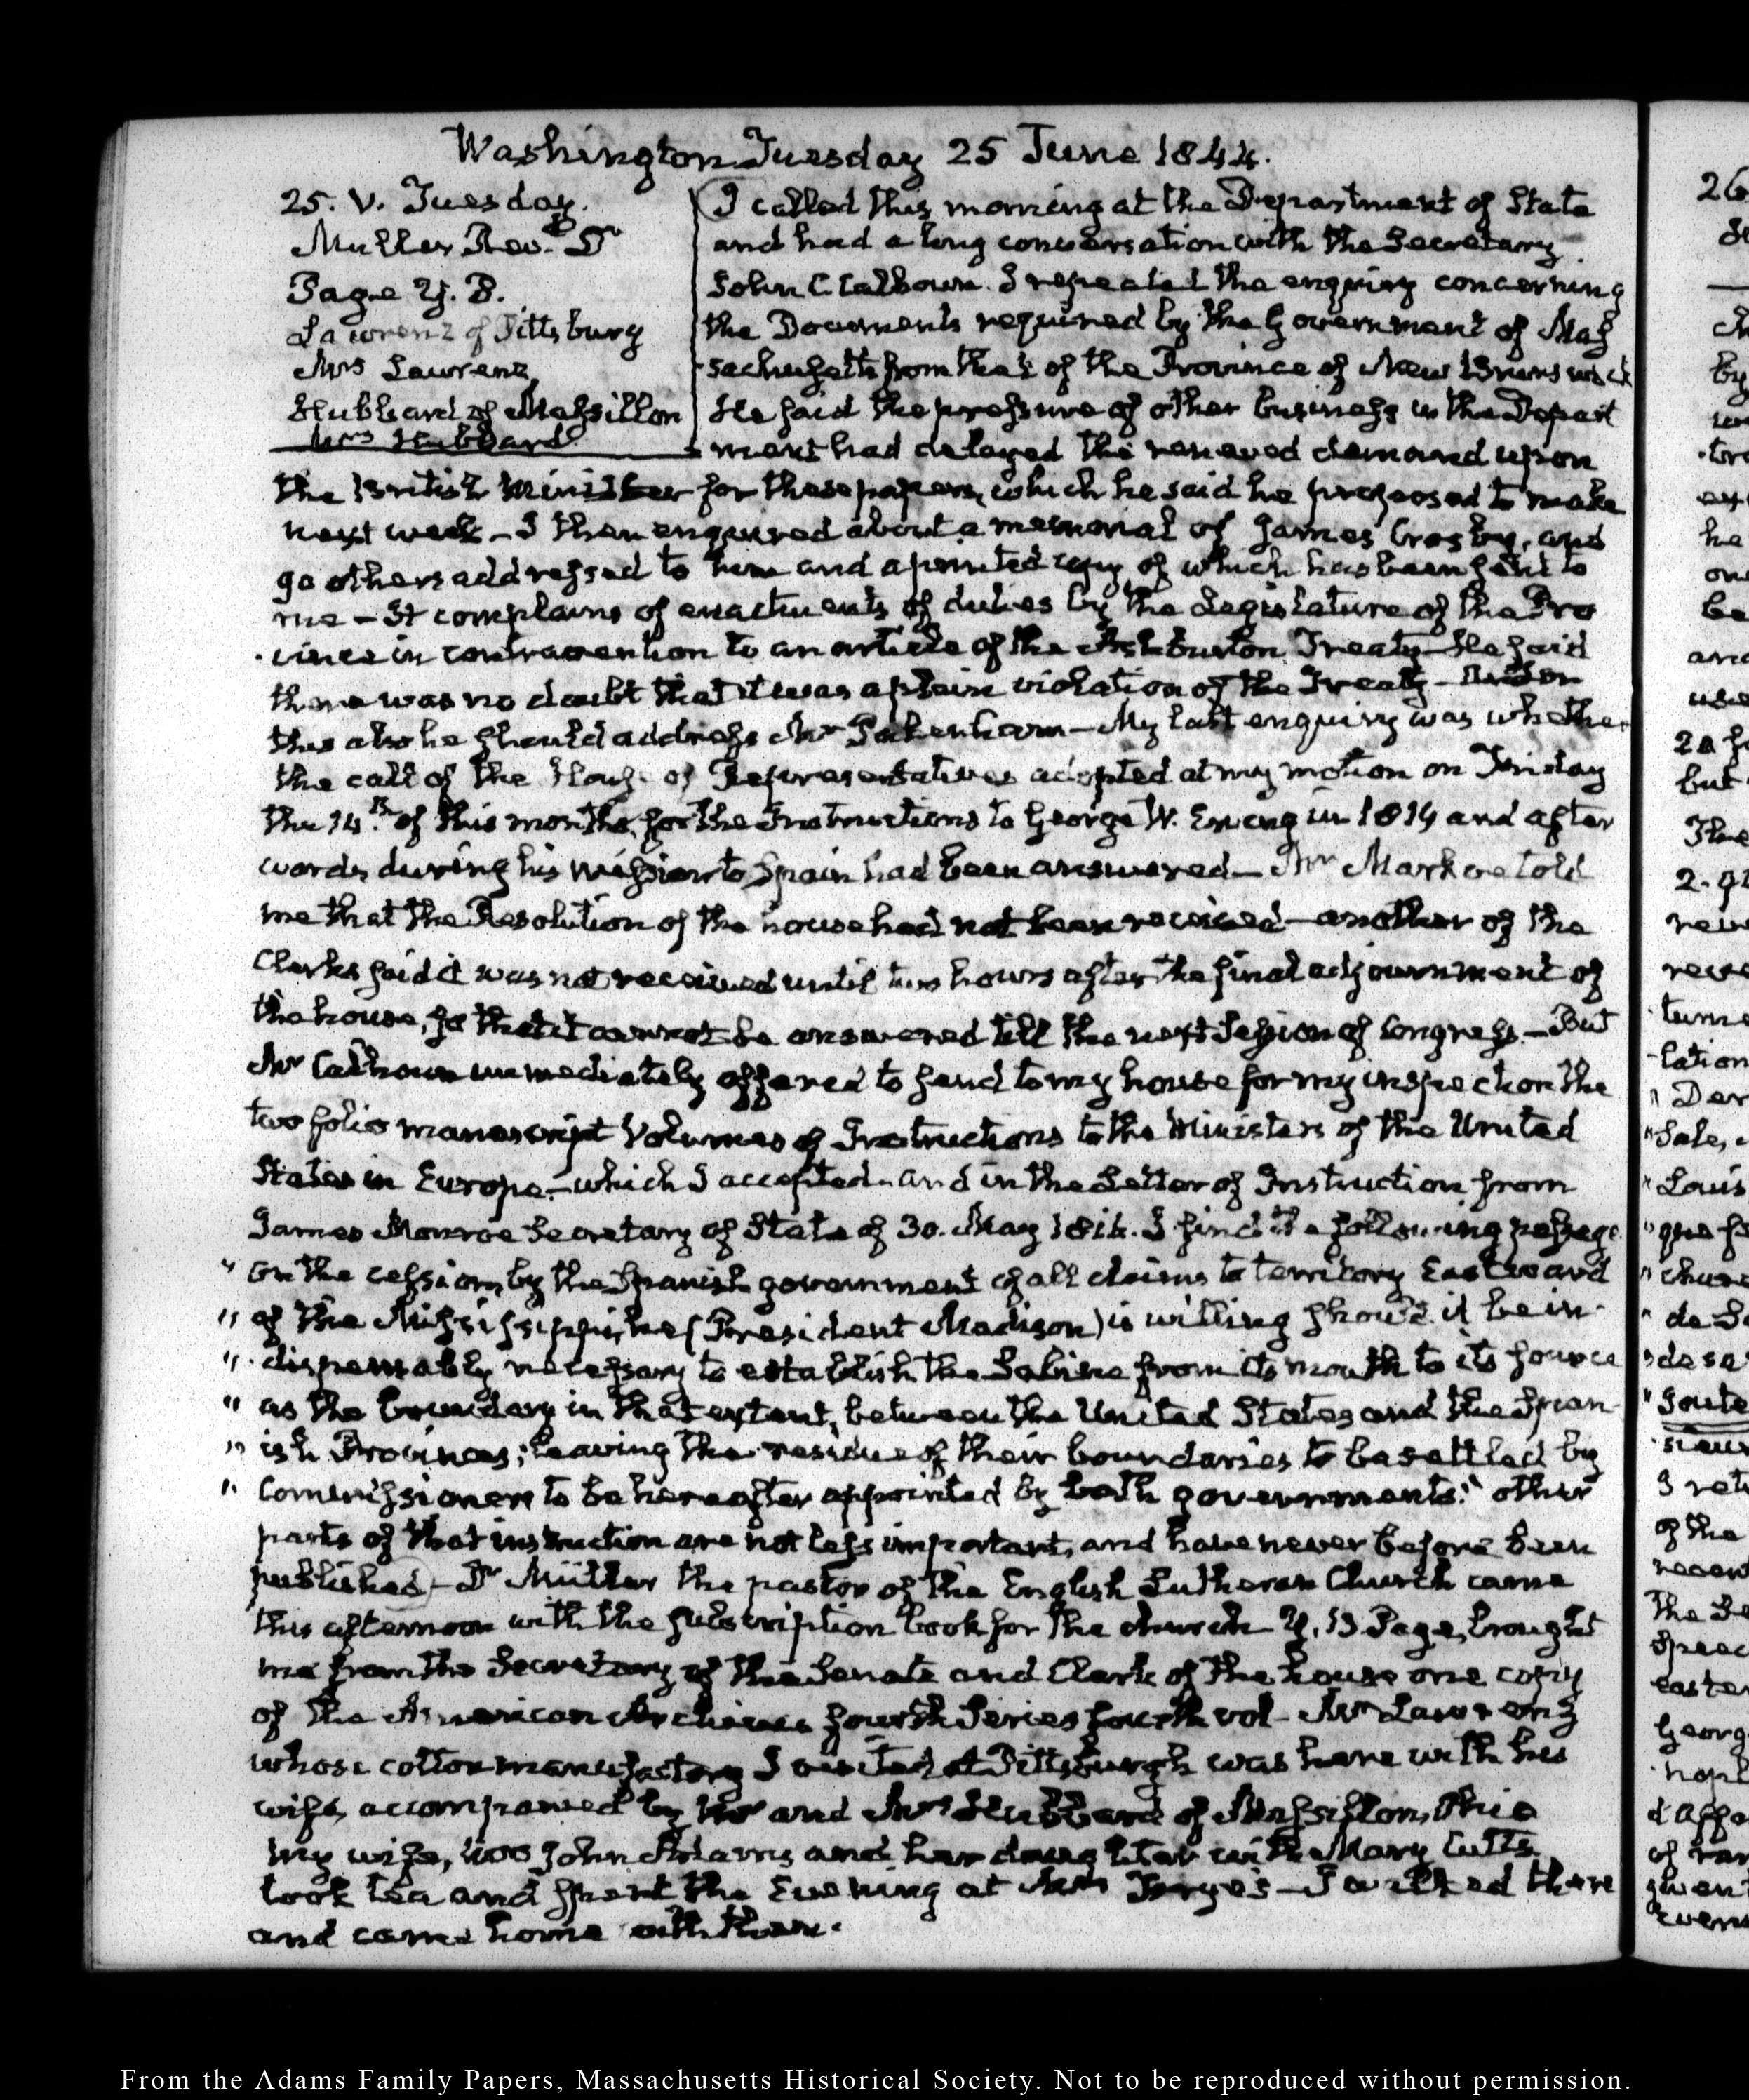 Washington Tuesday 25 June 1844.
25. V. Tuesday.
Muller Revd. Dr
Page Y. B.
Lawrenz of Pittsburg
Mrs Lawrenz
Hubbard of Massillon
Mrs Hubbard
I called this morning at the Department of State
and had a long conversation with the Secretary
John C Calhoun. I repeated the enquiry concerning
the Documents required by the Government of Mas
-sachusetts from that of the Province of New Brunswick
He said the pressure of other business in the Depart
ment had delayed the renewed demand upon
the British Minister for these papers, which he said he proposed to make
next week – I then enquired about a memorial of James Crosby, and
90 others addressed to him and a printed copy of which has been sent to
me – It complains of enactments of duties by the Legislature of the Pro
-vince in contravention to an article of the Ashburton Treaty – He said
there was no doubt that it was a plain violation of the Treaty – And on
this also he should address Mr Pakenham – My last enquiry was whether
the call of the House of Representatives adopted at my motion on Friday
the 14th. of this month, for the Instructions to George W. Erving in 1814 and after
wards during his mission to Spain had been answered – Mr Markoe told
me that the Resolution of the house had not been received – another of the
Clerks said it was not received until two hours after the final adjournment of
the house, so that it cannot be answered till the next Session of Congress. – But
Mr Calhoun immediately offered to send to my house for my inspection the
two folio manuscript Volumes of Instructions to the Ministers of the United
States in Europe. – which I accepted – and in the Letter of Instruction from
James Monroe Secretary of State of 30. May 1816. I find the following passage
" On the cession, by the Spanish government of all claims to territory Eastward
" of the Mississippi, he (President Madison) is willing should it be in-
" -dispensably necessary to establish the Sabine from its mouth to its source
" as the boundary in that extent, between the United States and the Span-
" ish Provinces; leaving the residue of their boundaries to be settled by
" Commissioners to be hereafter appointed by both governments." other
parts of that instruction are not less important, and have never before been
published – Dr Müller the pastor of the English Lutheran Church came
this afternoon with the subscription book for the church – Y. B. Page, brought
me from the Secretary of the Senate and Clerk of the house one copy
of the American Archives fourth Series fourth vol – Mr Lawrenz
whose cotton manufactory I visited at Pittsburgh was here with his
wife, accompanied by Mr and Mrs Hubbard of Massillon, Ohio
My wife, Mrs John Adams and her daughter with Mary Cutts
took tea and spent the Evening at Mrs – I walked there
and came home with them.
26
From the Adams Family Papers, Massachusetts Historical Society. Not to be reproduced without permission.